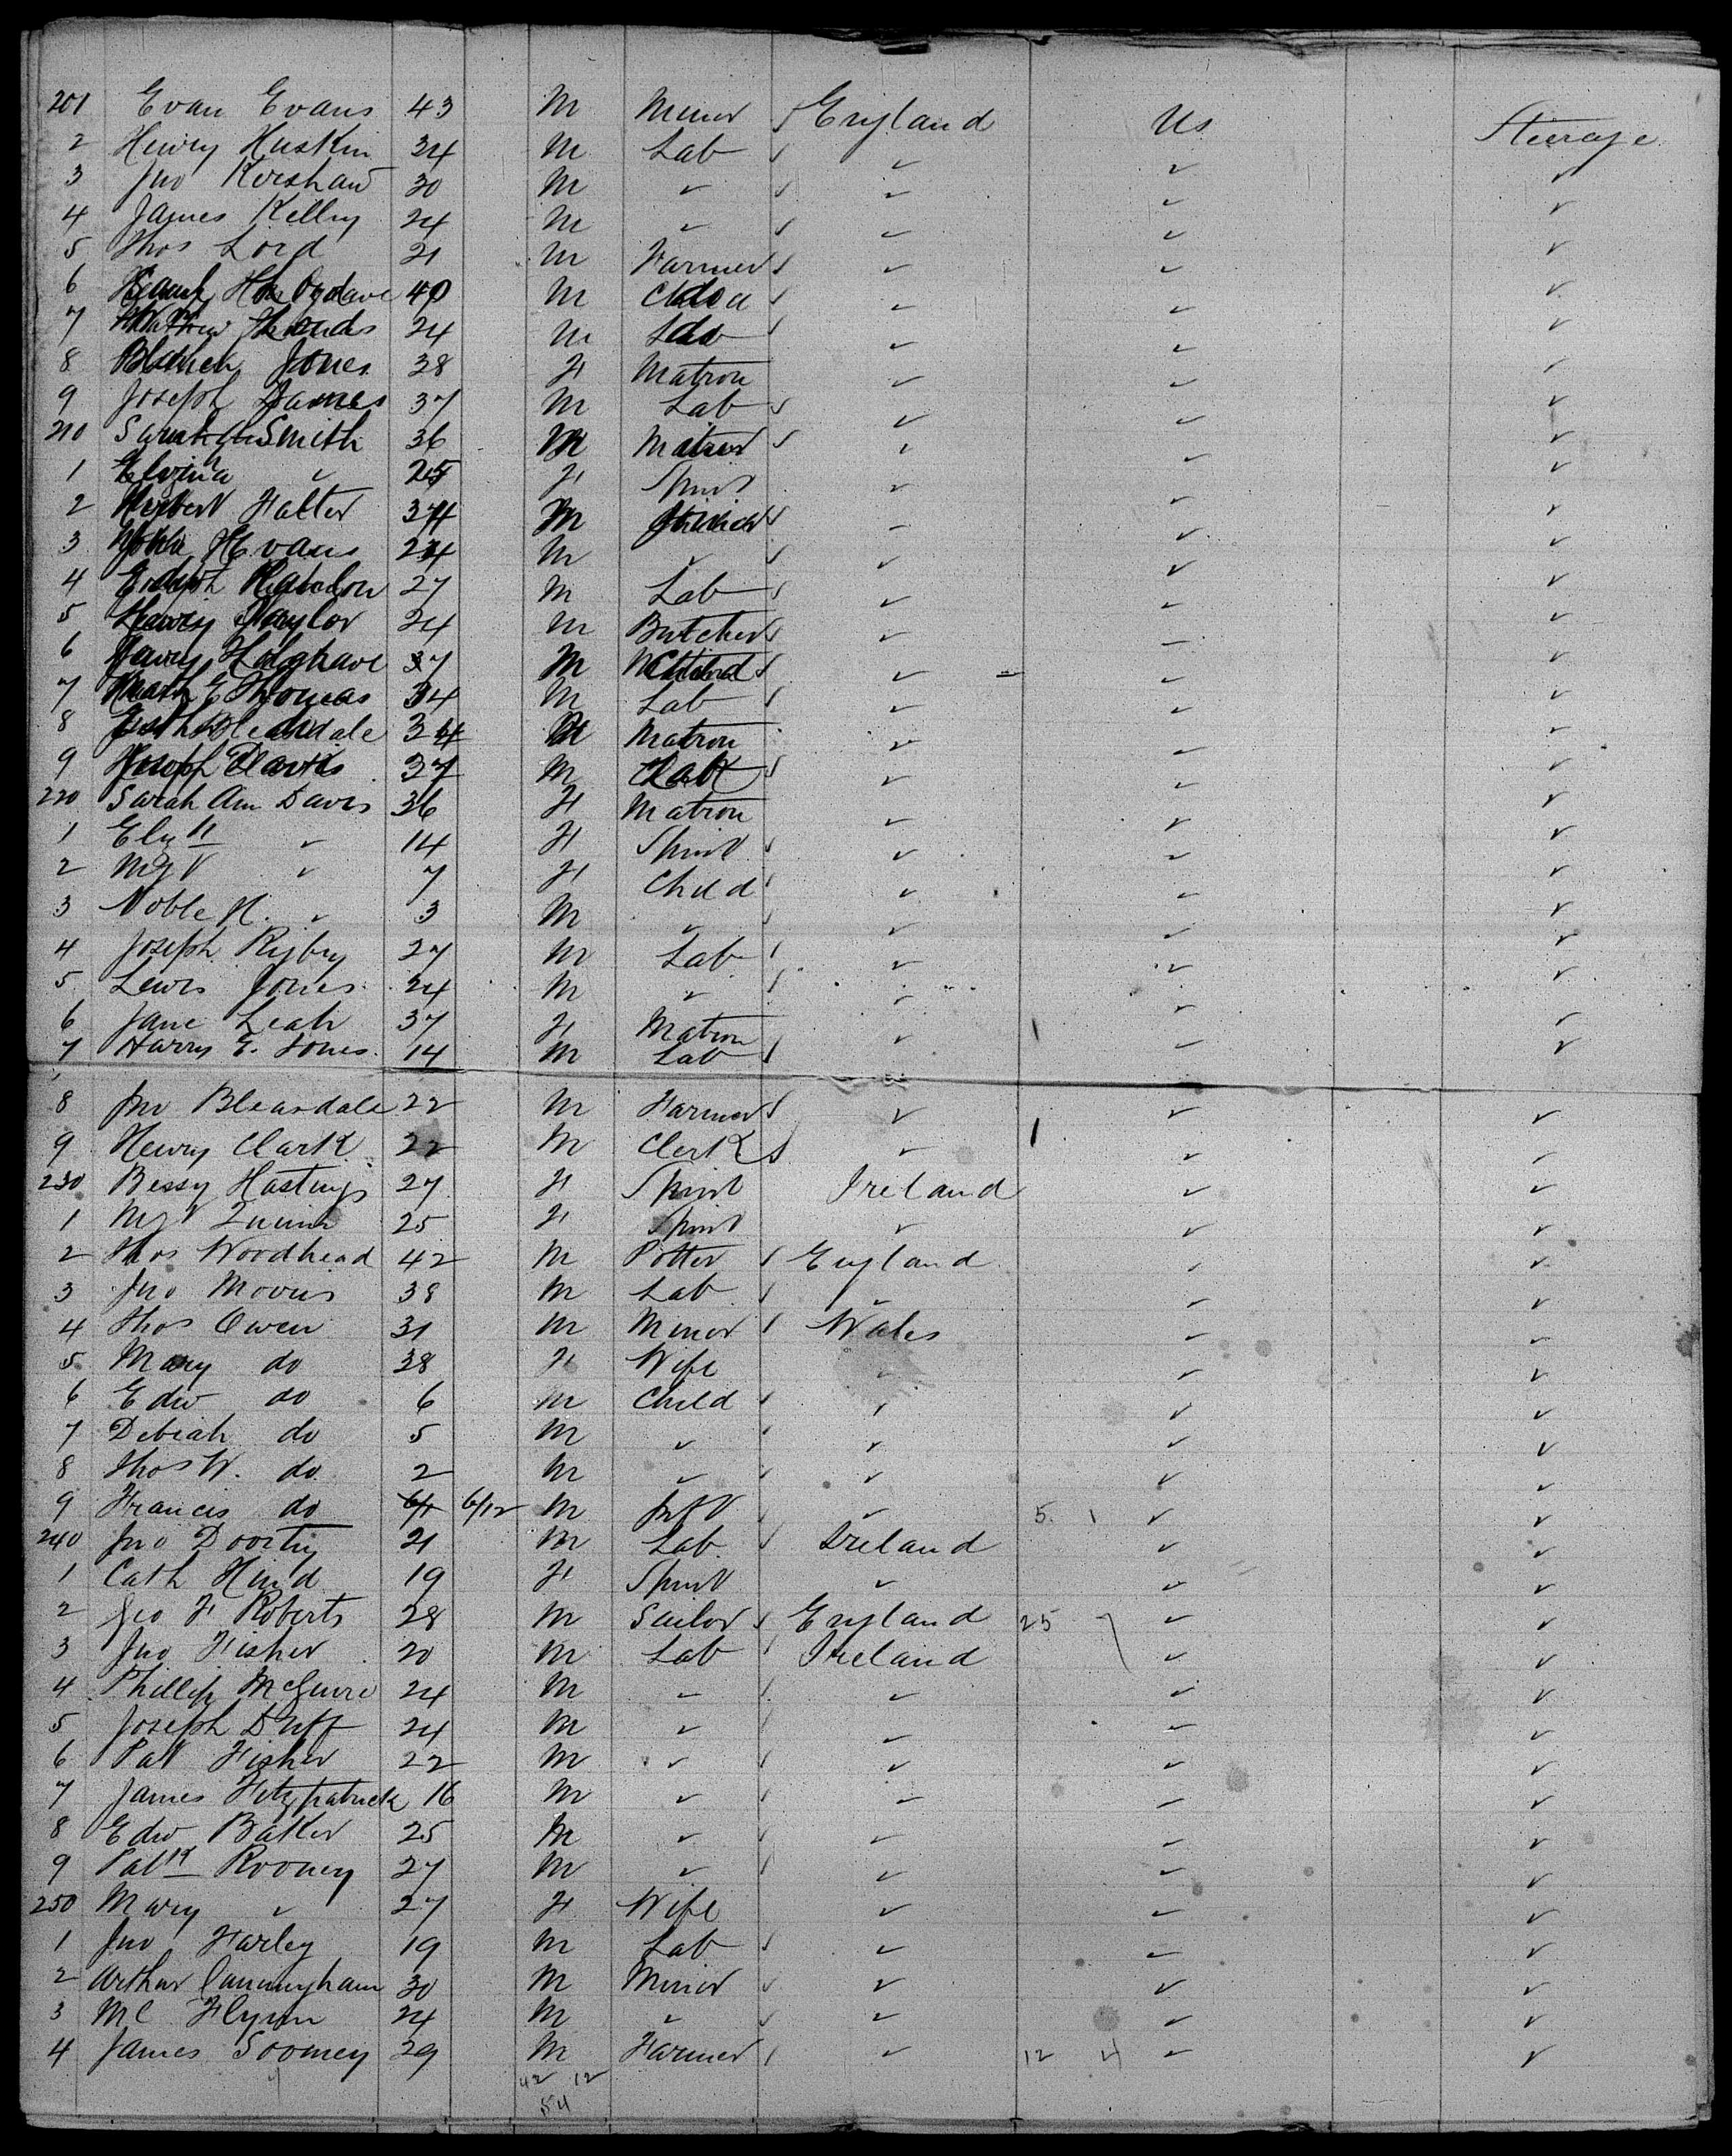 201 Evan Evans 43 M Miner England Us Steerage
2 Henry Huskin 34 M Lab ✓ ✓ ✓
3 Jno Kershaw 30 M ✓ ✓ ✓ ✓
4 James Kelley 24 M ✓ ✓ ✓ ✓
5 Thos Lord 21 M Farmer ✓ ✓ ✓
6 40 M ✓ ✓ ✓
7 24 M ✓ ✓ ✓
8 Jones 38 F Matron ✓ ✓ ✓
9 Joseph James 37 M Lab ✓ ✓ ✓
210 Smith 36 ✓ ✓ ✓
1 ✓ 25 F Spinst ✓ ✓ ✓
2 Herbert Halter M ✓ ✓ ✓
3 Evans 24 M ✓ ✓ ✓ ✓
4 27 M Lab ✓ ✓ ✓
5 Taylor 24 M Butcher ✓ ✓ ✓
6 37 M ✓ ✓ ✓
7 Thomas 34 M Lab ✓ ✓ ✓
8 Bleasdale Matron ✓ ✓ ✓
9 Joseph Davis 37 M ✓ ✓ ✓
220 Sarah Ann Davis 36 F Matron ✓ ✓ ✓
1 Elizth ✓ 14 F Spinst ✓ ✓ ✓
2 Mgt ✓ 7 F Child ✓ ✓ ✓
3 Noble H. ✓ 3 M ✓ ✓ ✓ ✓
4 Joseph Rigby 27 M Lab ✓ ✓ ✓
5 Lewis Jones 24 M ✓ ✓ ✓ ✓
6 Jane Leah 37 F Matron ✓ ✓ ✓
7 Harry E. Jones 14 M Lab ✓ ✓
8 Jno Bleasdale 22 M Farmer ✓ ✓ ✓
9 Henry Clark 22 M Clerk ✓ ✓ ✓
230 Bessy Hastings 27 F Spinst Ireland ✓ ✓
1 Mgt Quinn 25 F Spinst ✓ ✓ ✓
2 Thos Woodhead 42 M Potter England ✓ ✓
3 Jno Morris 38 M Lab ✓ ✓ ✓
4 Thos Owen 31 M Miner Wales ✓ ✓
5 Mary do 38 F Wife ✓ ✓ ✓
6 Edw do 6 M Child ✓ ✓ ✓
7 Debiah do 5 M ✓ ✓ ✓ ✓
8 Thos W. do 2 M ✓ ✓ ✓ ✓
9 Francis do 6/12 M Inft ✓ 5 1 ✓ ✓
240 Jno Doorty 21 M Lab Ireland ✓ ✓
1 Cath Hind 19 F Spinst ✓ ✓ ✓
2 Geo F Roberts 28 M Sailor England 25 7 ✓ ✓
3 Jno Fisher 20 M Lab Ireland ✓ ✓
4 Phillip McGuire 24 M ✓ ✓ ✓ ✓
5 Joseph Duff 24 M ✓ ✓ ✓ ✓
6 Pat Fisher 22 M ✓ ✓ ✓ ✓
7 James Fitzpatrick 16 M ✓ ✓ ✓ ✓
8 Edw Baker 25 M ✓ ✓ ✓ ✓
9 Patk Rooney 27 M ✓ ✓ ✓ ✓
250 Mary ✓ 27 F Wife ✓ ✓ ✓
1 Jno Farley 19 M Lab ✓ ✓ ✓
2 Arthur Cunningham 30 M Miner ✓ ✓ ✓
3 Ml Flynn 24 M ✓ ✓ ✓ ✓
4 James Soomey 29 M Farmer ✓ 12 4 ✓ ✓
42 12
54